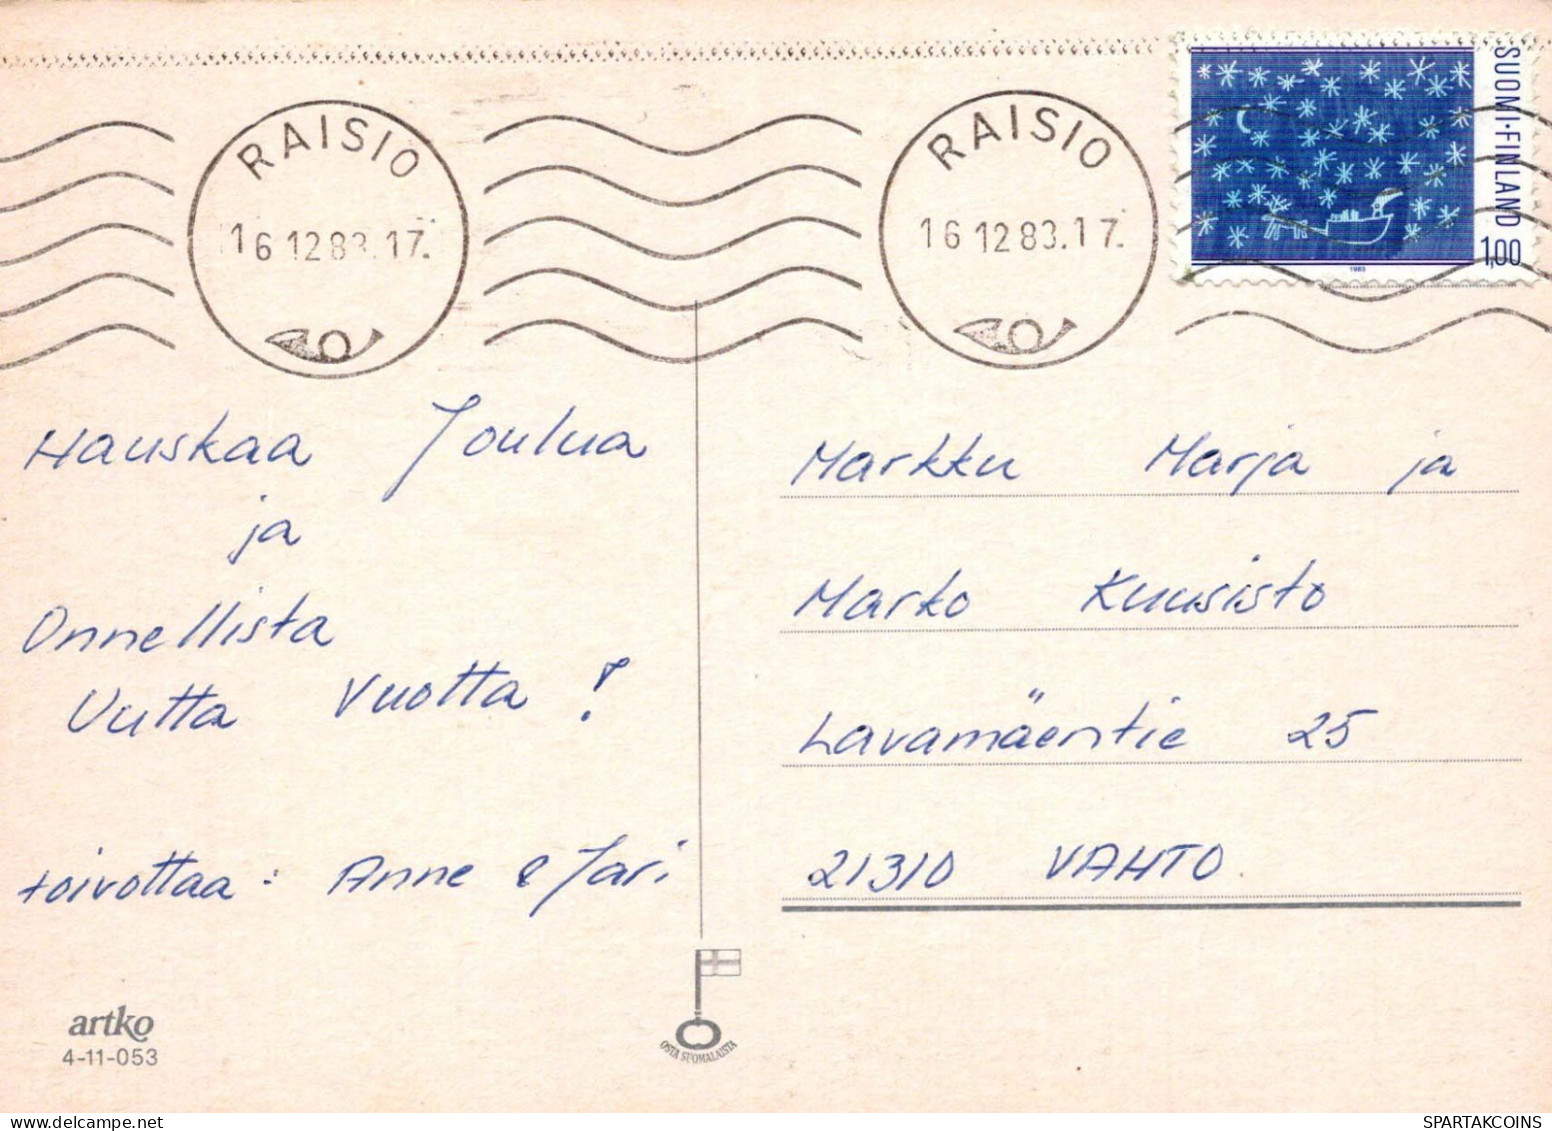 RAISIO
16 12 83. 17.
RAISIO
16 12 83. 17.
SUOMI·FINLAND
1,00
1983
Hauskaa Joulua
ja
Onnellista
Uutta Vuotta !
toivottaa : Anne & Jari
Markku Marja ja
Marko Kuusisto
Lavamäentie 25
21310 VAHTO
artko
4-11-053
OSTA SUOMALAISTA
hippostcard.com
SPARTAKCOINS